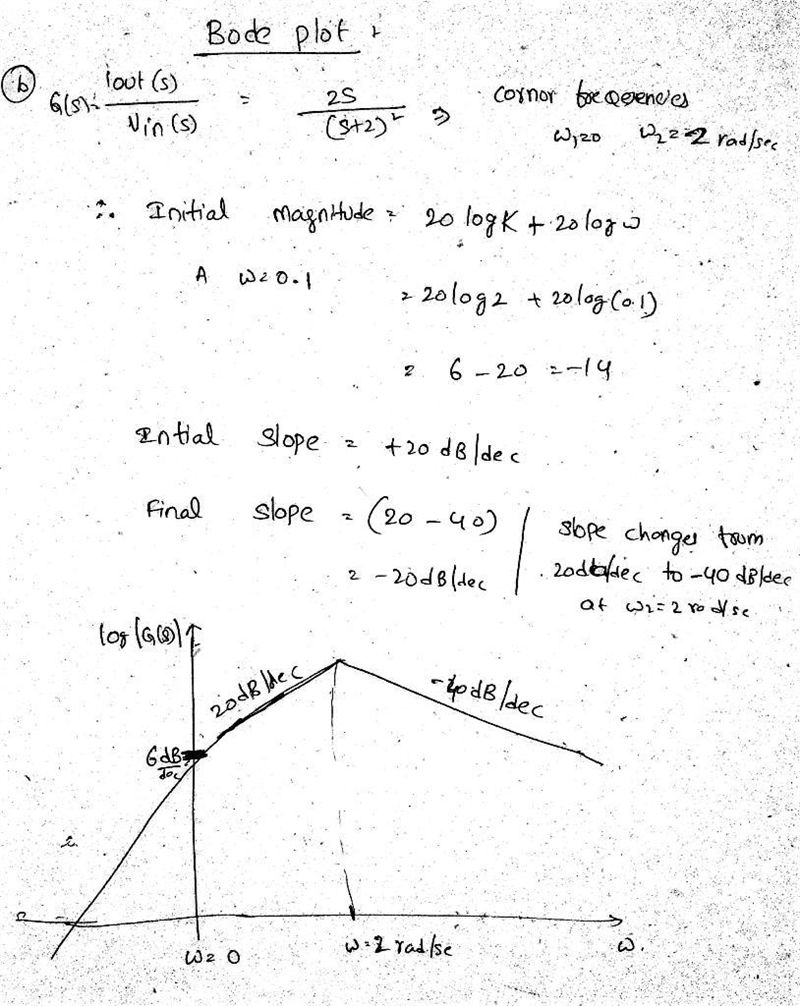 Bode plot :
(b) G(s) = Iout(s) / Vin(s) = 2S / (S+2)² ⇒ cornor frequencies
ω₁=0 ω₂=2 rad/sec
∴ Initial magnitude = 20 log K + 20 log ω
A ω=0.1 = 20 log 2 + 20 log (0.1)
= 6 - 20 = -14
Intial slope = +20 dB/dec
Final slope = (20 - 40) | slope changes from
= -20 dB/dec | 20dB/dec to -40 dB/dec
at ω₂=2 rod/sc
log |G(s)|
20dB/dec
-40dB/dec
6dB/dec
ω=0
ω=2 rad/sc
ω.